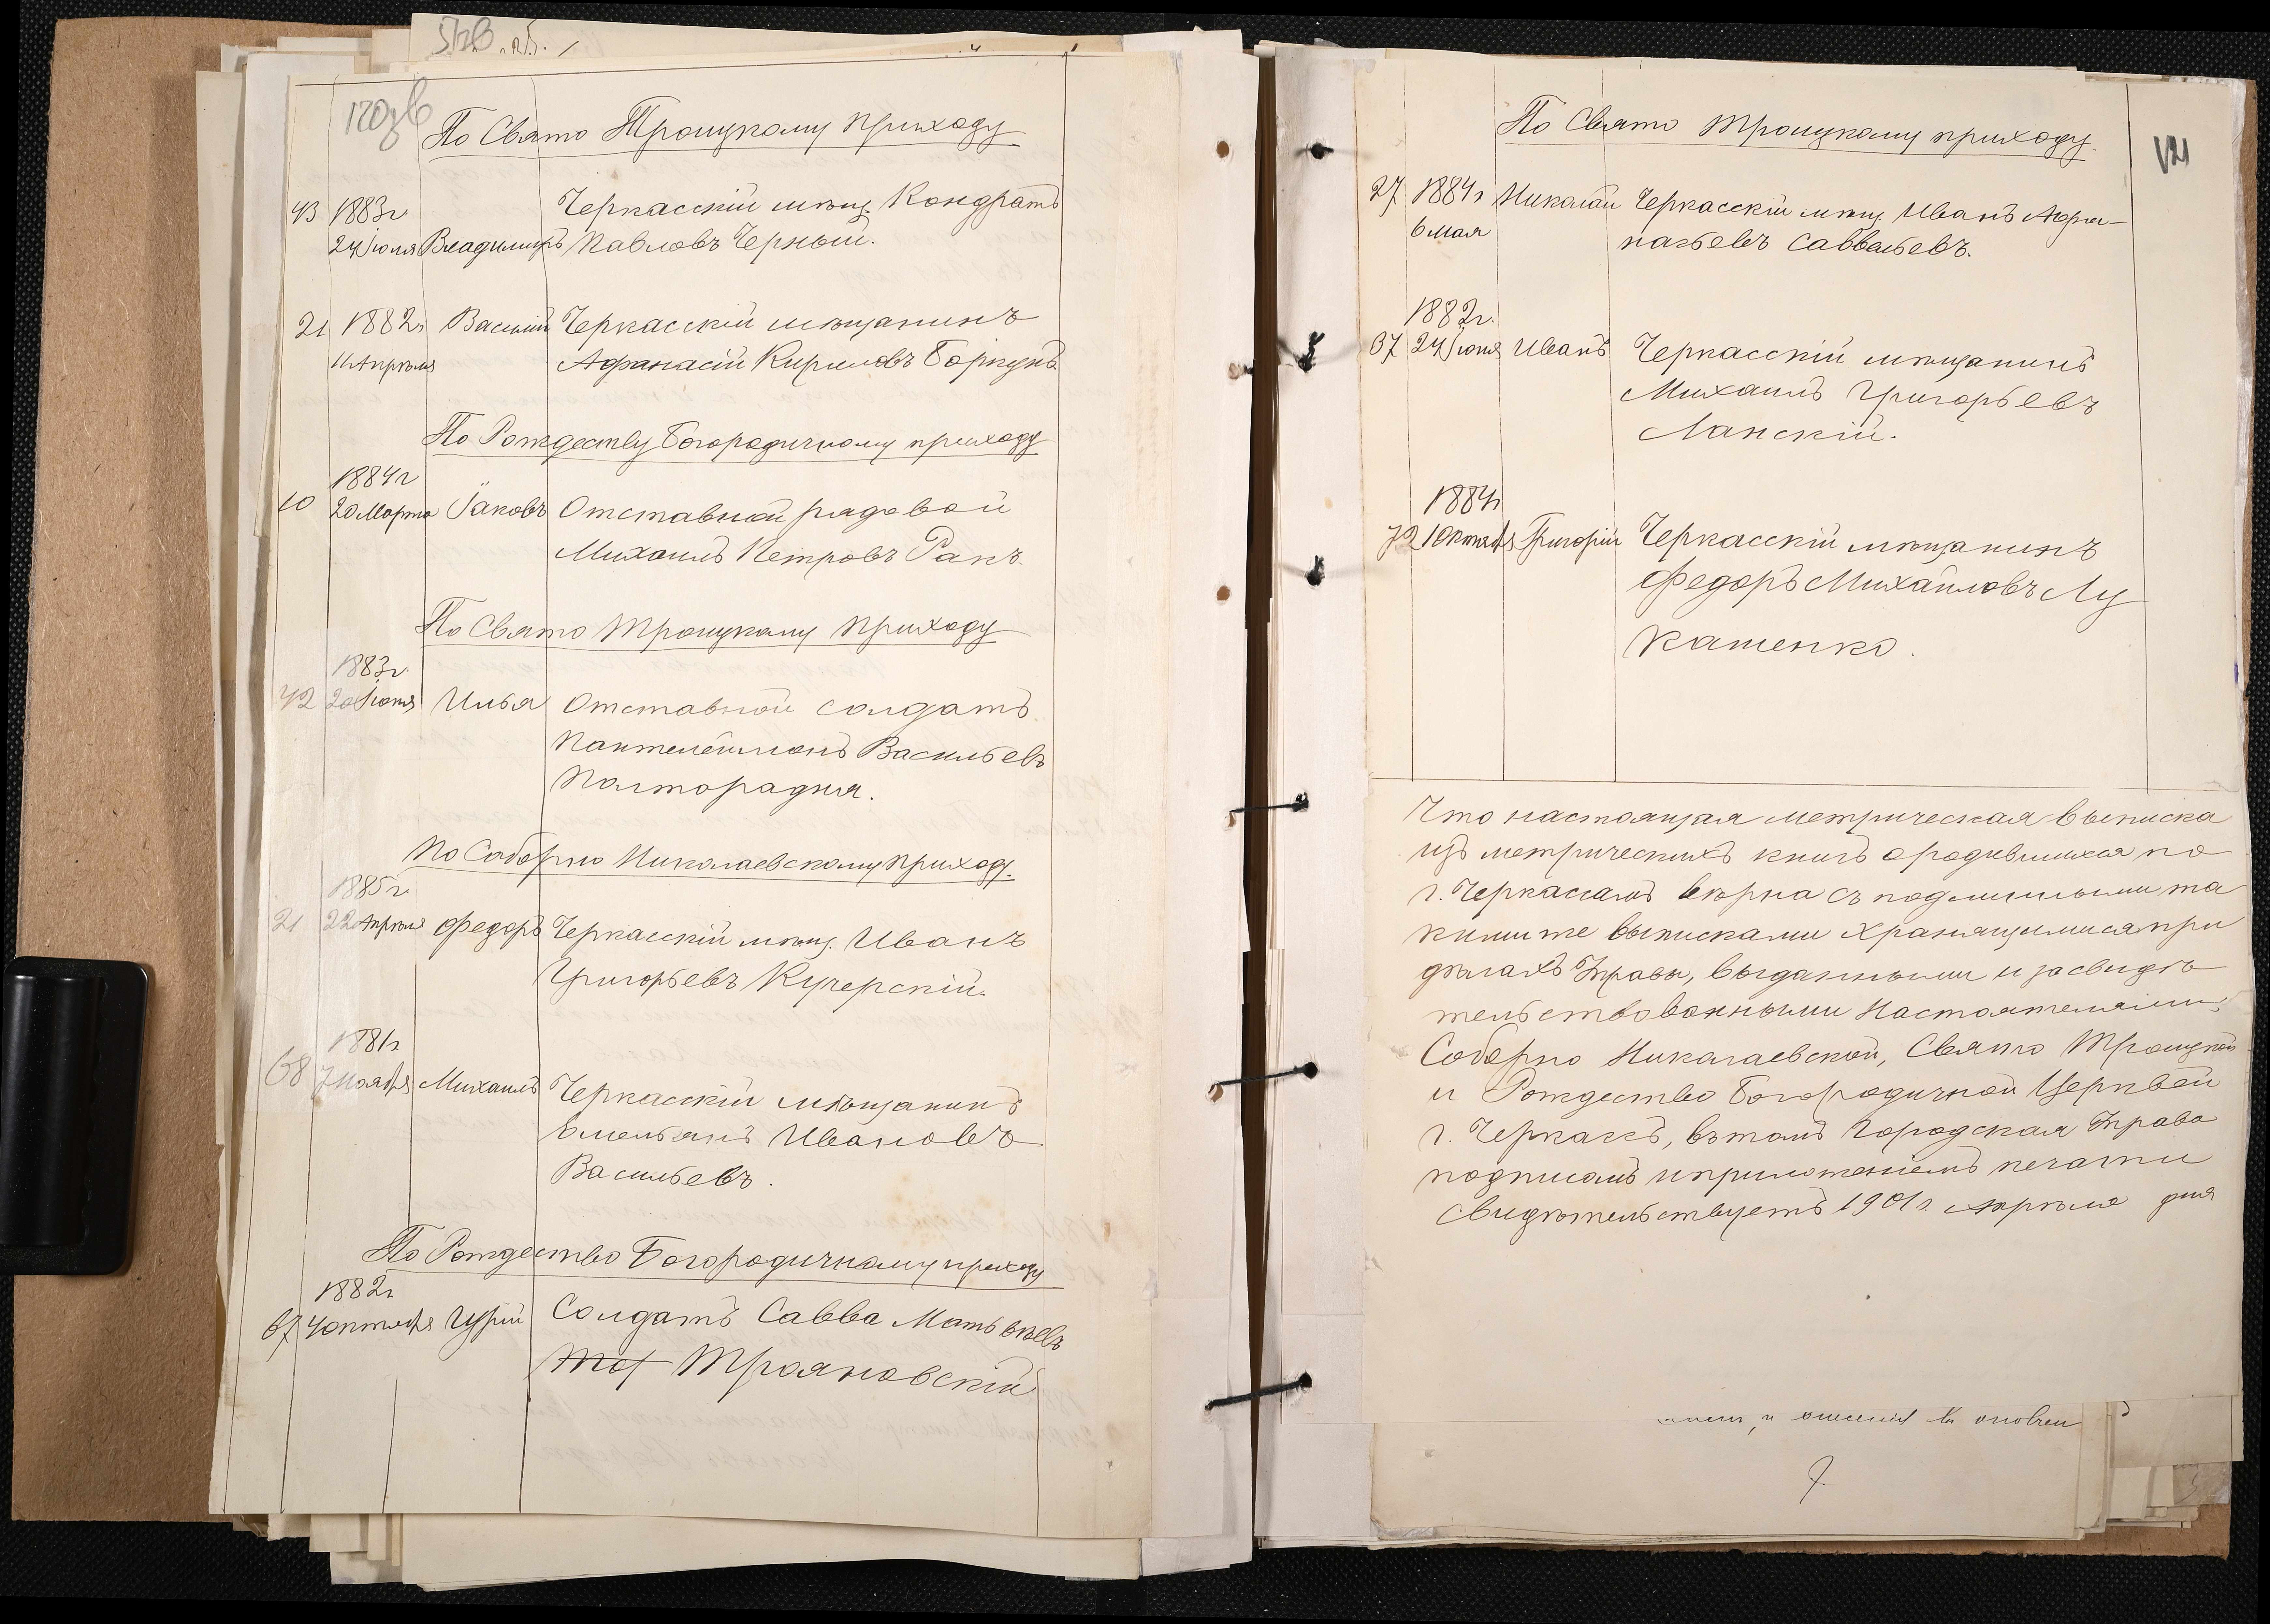 170зв
По Свято Троицкому приходу
43 1883г Черкасскій мѣщ. Кондратъ
24 Іюля Владимиръ Павловъ Черный.
21 1882г Василій Черкасскій мѣщанинъ
11 Апрѣля Афанасій Кириловъ Боркунъ
По Рождеству Богородичному приходу
1884г
10 20 Марта Іаковъ Отставной рядовой
Михаилъ Петровъ Ракъ.
По Свято Троицкому приходу
1883г.
42 20 Іюня Илья Отставной солдатъ
Пантелеймонъ Васильевъ
Полторадня.
По Соборно Николаевскому приходу.
1885г.
21 22 Апрѣля Федоръ Черкасскій мѣщ. Иванъ
Григорьевъ Кучерскій.
1881г
68 7 Ноября Михаилъ Черкасскій мѣщанинъ
Омельянъ Ивановъ
Васильевъ.
По Рождество Богородичному приходу
1882г
67 4 Октября Гурій Солдатъ Савва Матвѣевъ
Трояновскій
По Свято Троицкому приходу.
171
27 1884г Николай Черкасскій мѣщ. Иванъ Афа-
6 мая насьевъ Саввельевъ.
1882г.
37 24 Іюня Иванъ Черкасскій мѣщанинъ
Михаилъ Григорьевъ
Ланскій.
1884г
72 1 Октября Григорій Черкасскій мѣщанинъ
Федоръ Михайловъ Лу
кашенко.
Что настоящая метрическая выписка
изъ метрическихъ книгъ о родившихся по
г. Черкасамъ вѣрна съ подлинными та
кими же выписками хранящимися при
дѣлахъ Управы, выданными и засвидѣ
тельствованными Настоятелями:
Соборно Николаевской, Свято Троицкой
и Рождество Богородичной Церквей
г. Черкасъ, въ томъ Городская Управа
подписомъ и приложеніемъ печати
свидѣтельствуетъ 1901г. Апрѣля дня